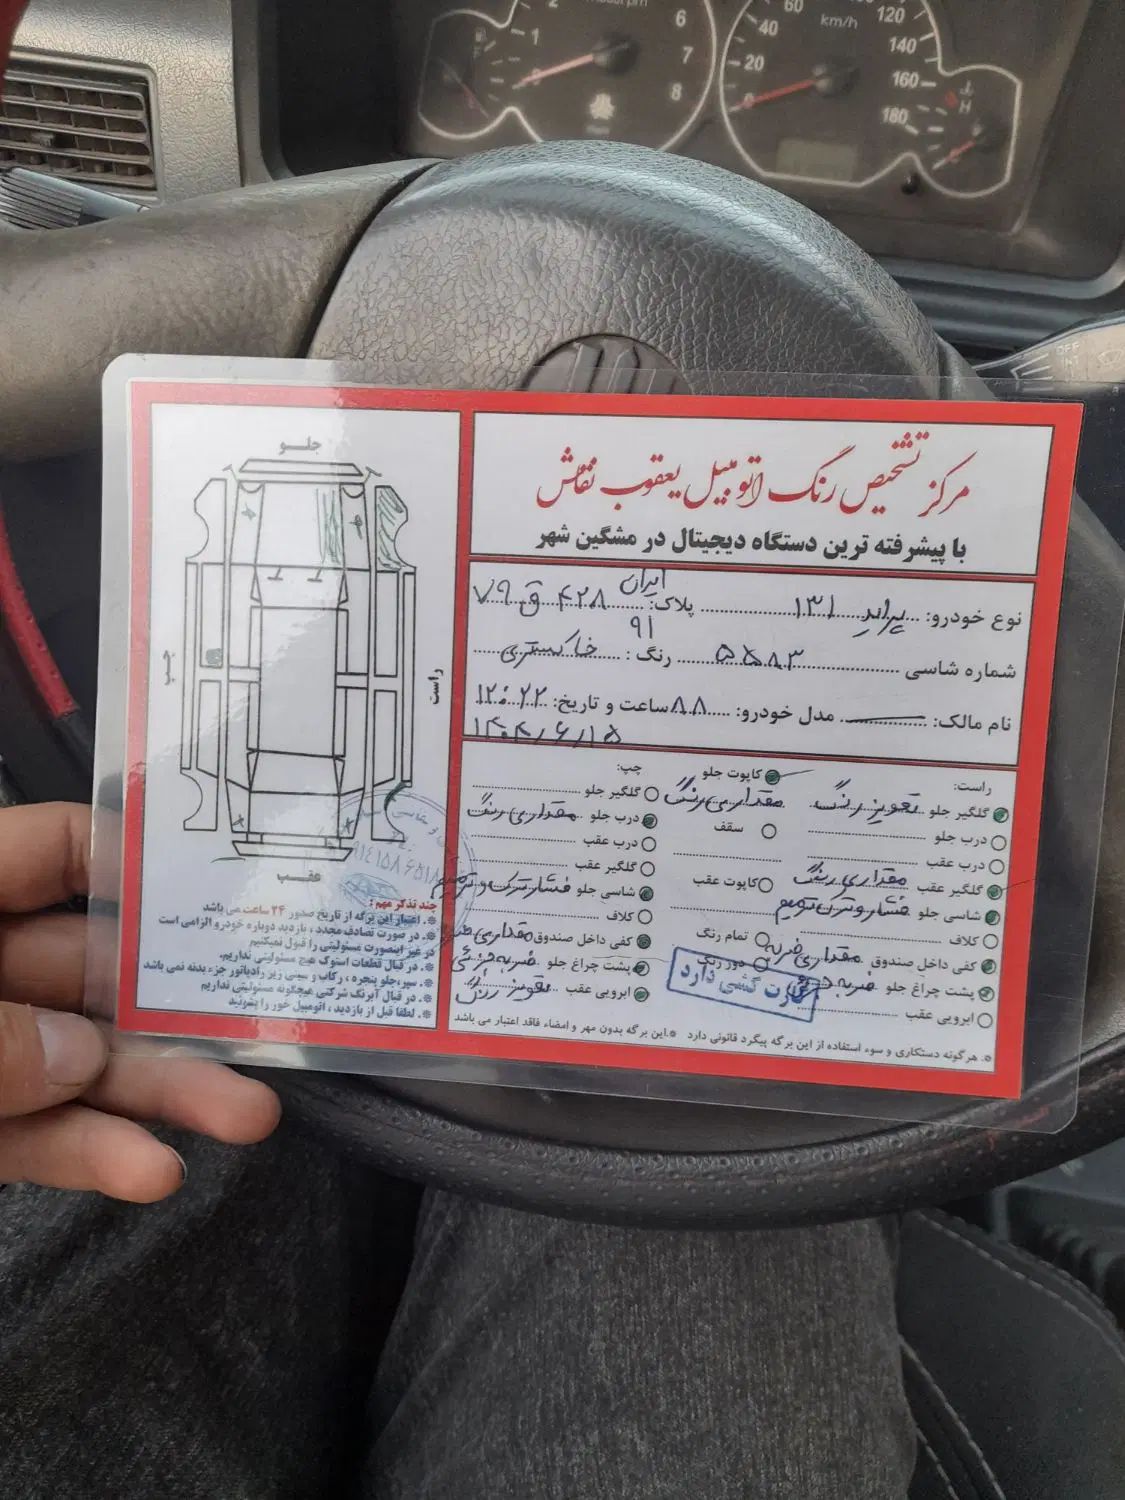 6
7
8
1
20
40
60
km/h
120
140
160
180
H
OFF
مرکز تشخیص رنگ اتومبیل یعقوب نقاش
با پیشرفته ترین دستگاه دیجیتال در مشگین شهر
نوع خودرو: پراید ۱۳۱ پلاک: ۷۹ ق ۴۲۸ ایران ۹۱
شماره شاسی ۵۵۸۳ رنگ: خاکستری
نام مالک: مدل خودرو: ۸۸ ساعت و تاریخ: ۱۲:۲۲
۱۴۰۴/۶/۱۵
راست:
گلگیر جلو تعویز رنگ
درب جلو
درب عقب
گلگیر عقب مقداری رنگ
شاسی جلو فشار و ترک ترمیم
کلاف
کفی داخل صندوق مقداری ضربه
پشت چراغ جلو ضربه جزئی
ابرویی عقب
کاپوت جلو
مقداری رنگ
سقف
کاپوت عقب
تمام رنگ
دور رنگ
کارت گشی دارد
چپ:
گلگیر جلو
درب جلو مقداری رنگ
درب عقب
گلگیر عقب
شاسی جلو فشار ترک و ترمیم
کلاف
کفی داخل صندوق مقداری
پشت چراغ جلو ضربه جزئی
ابرویی عقب تعویز رنگ
*. هرگونه دستکاری و سوء استفاده از این برگه پیگرد قانونی دارد *.این برگه بدون مهر و امضاء فاقد اعتبار می باشد
جلو
چپ
راست
عقب
چند تذکر مهم :
*. اعتبار این برگه از تاریخ صدور ۲۴ ساعت می باشد
*. در صورت تصادف مجدد ، بازدید دوباره خودرو الزامی است
در غیر اینصورت مسئولیتی را قبول نمیکنیم
*. در قبال قطعات استوک هیچ مسئولیتی نداریم.
*. سپر،جلو پنجره ، رکاب و سینی زیر رادیاتور جزء بدنه نمی باشد
*. در قبال آبرنگ شرکتی هیچگونه مسئولیتی نداریم
*. لطفا قبل از بازدید ، اتومبیل خور را بشوئید